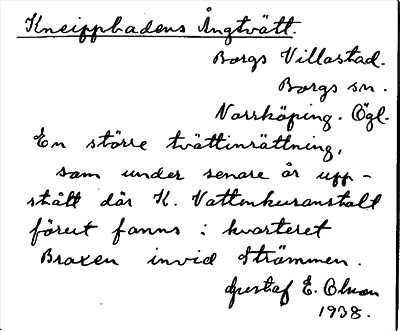 Kneippbadens Ångtvätt.
Borgs Villastad.
Borgs sn.
Norrköping. Ögl.
En större tvättinrättning,
som under senare år upp-
stått där K. Vattenkuranstalt
förut fanns i kvarteret
Braxen invid Strömmen.
Gustaf E. Olsson
1938.